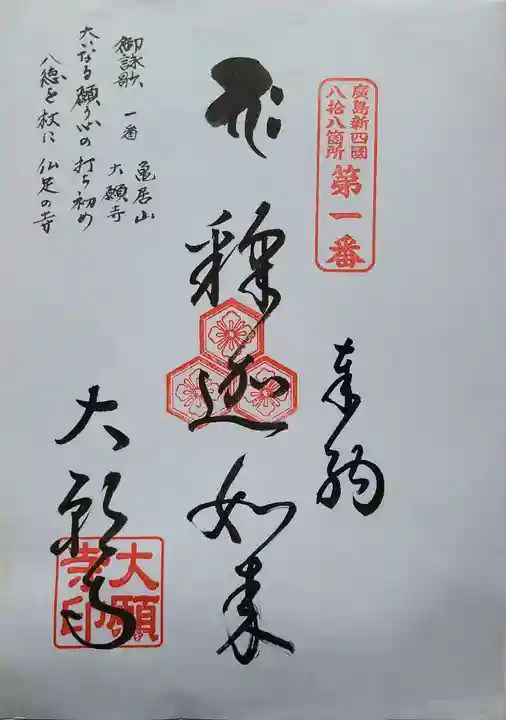 廣島新四國
八拾八箇所
第一番
奉納
釋迦如来
大願寺
大願
寺印
御詠歌 一番 亀居山
大願寺
大いなる願う心の打ち初め
八徳を杖に 仏足の寺